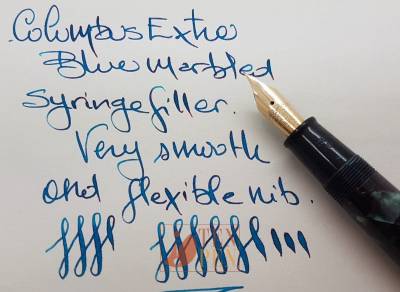 Columbus Extra
Blue marbled
syringe filler.
Very smooth
and flexible nib.